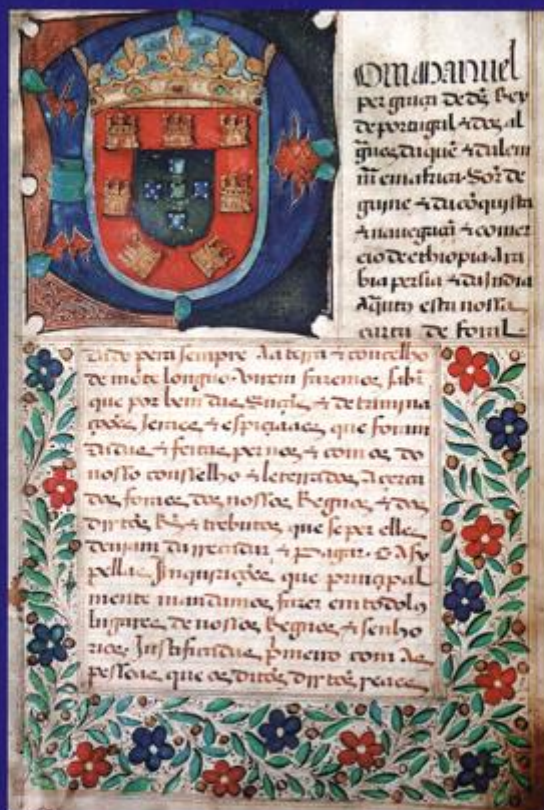 Dom manuel
per graça de ds Rey
de portugal & dos al
gues daquē & dalem
m em africa. Sor de
guine & da cōquista
& nauegaçā & comer
cio de ethiopia Ara
bia persia & da India
A quātos esta nossa
carta de foral.
dado pera sempre Aa terra & concelho
de mōte longuo. virem fazemos saber
que por bem das Sntças & detrimina
ções Jeraes & espiçiaaes que foram
dadas & feitas per nos & com os do
nosso conselho & leterados Acerca
dos foraes dos nossos Regnos & dos
dirtos Rs & trebutos que se per elles
deuiam darrecadar & pagar. E Asy
pellas Inquirições que principal
mente mandamos fazer em todolos
lugares de nossos Regnos & senho
rios Justificadas primeiro com As
pessoas que os ditos dirtos reaaes